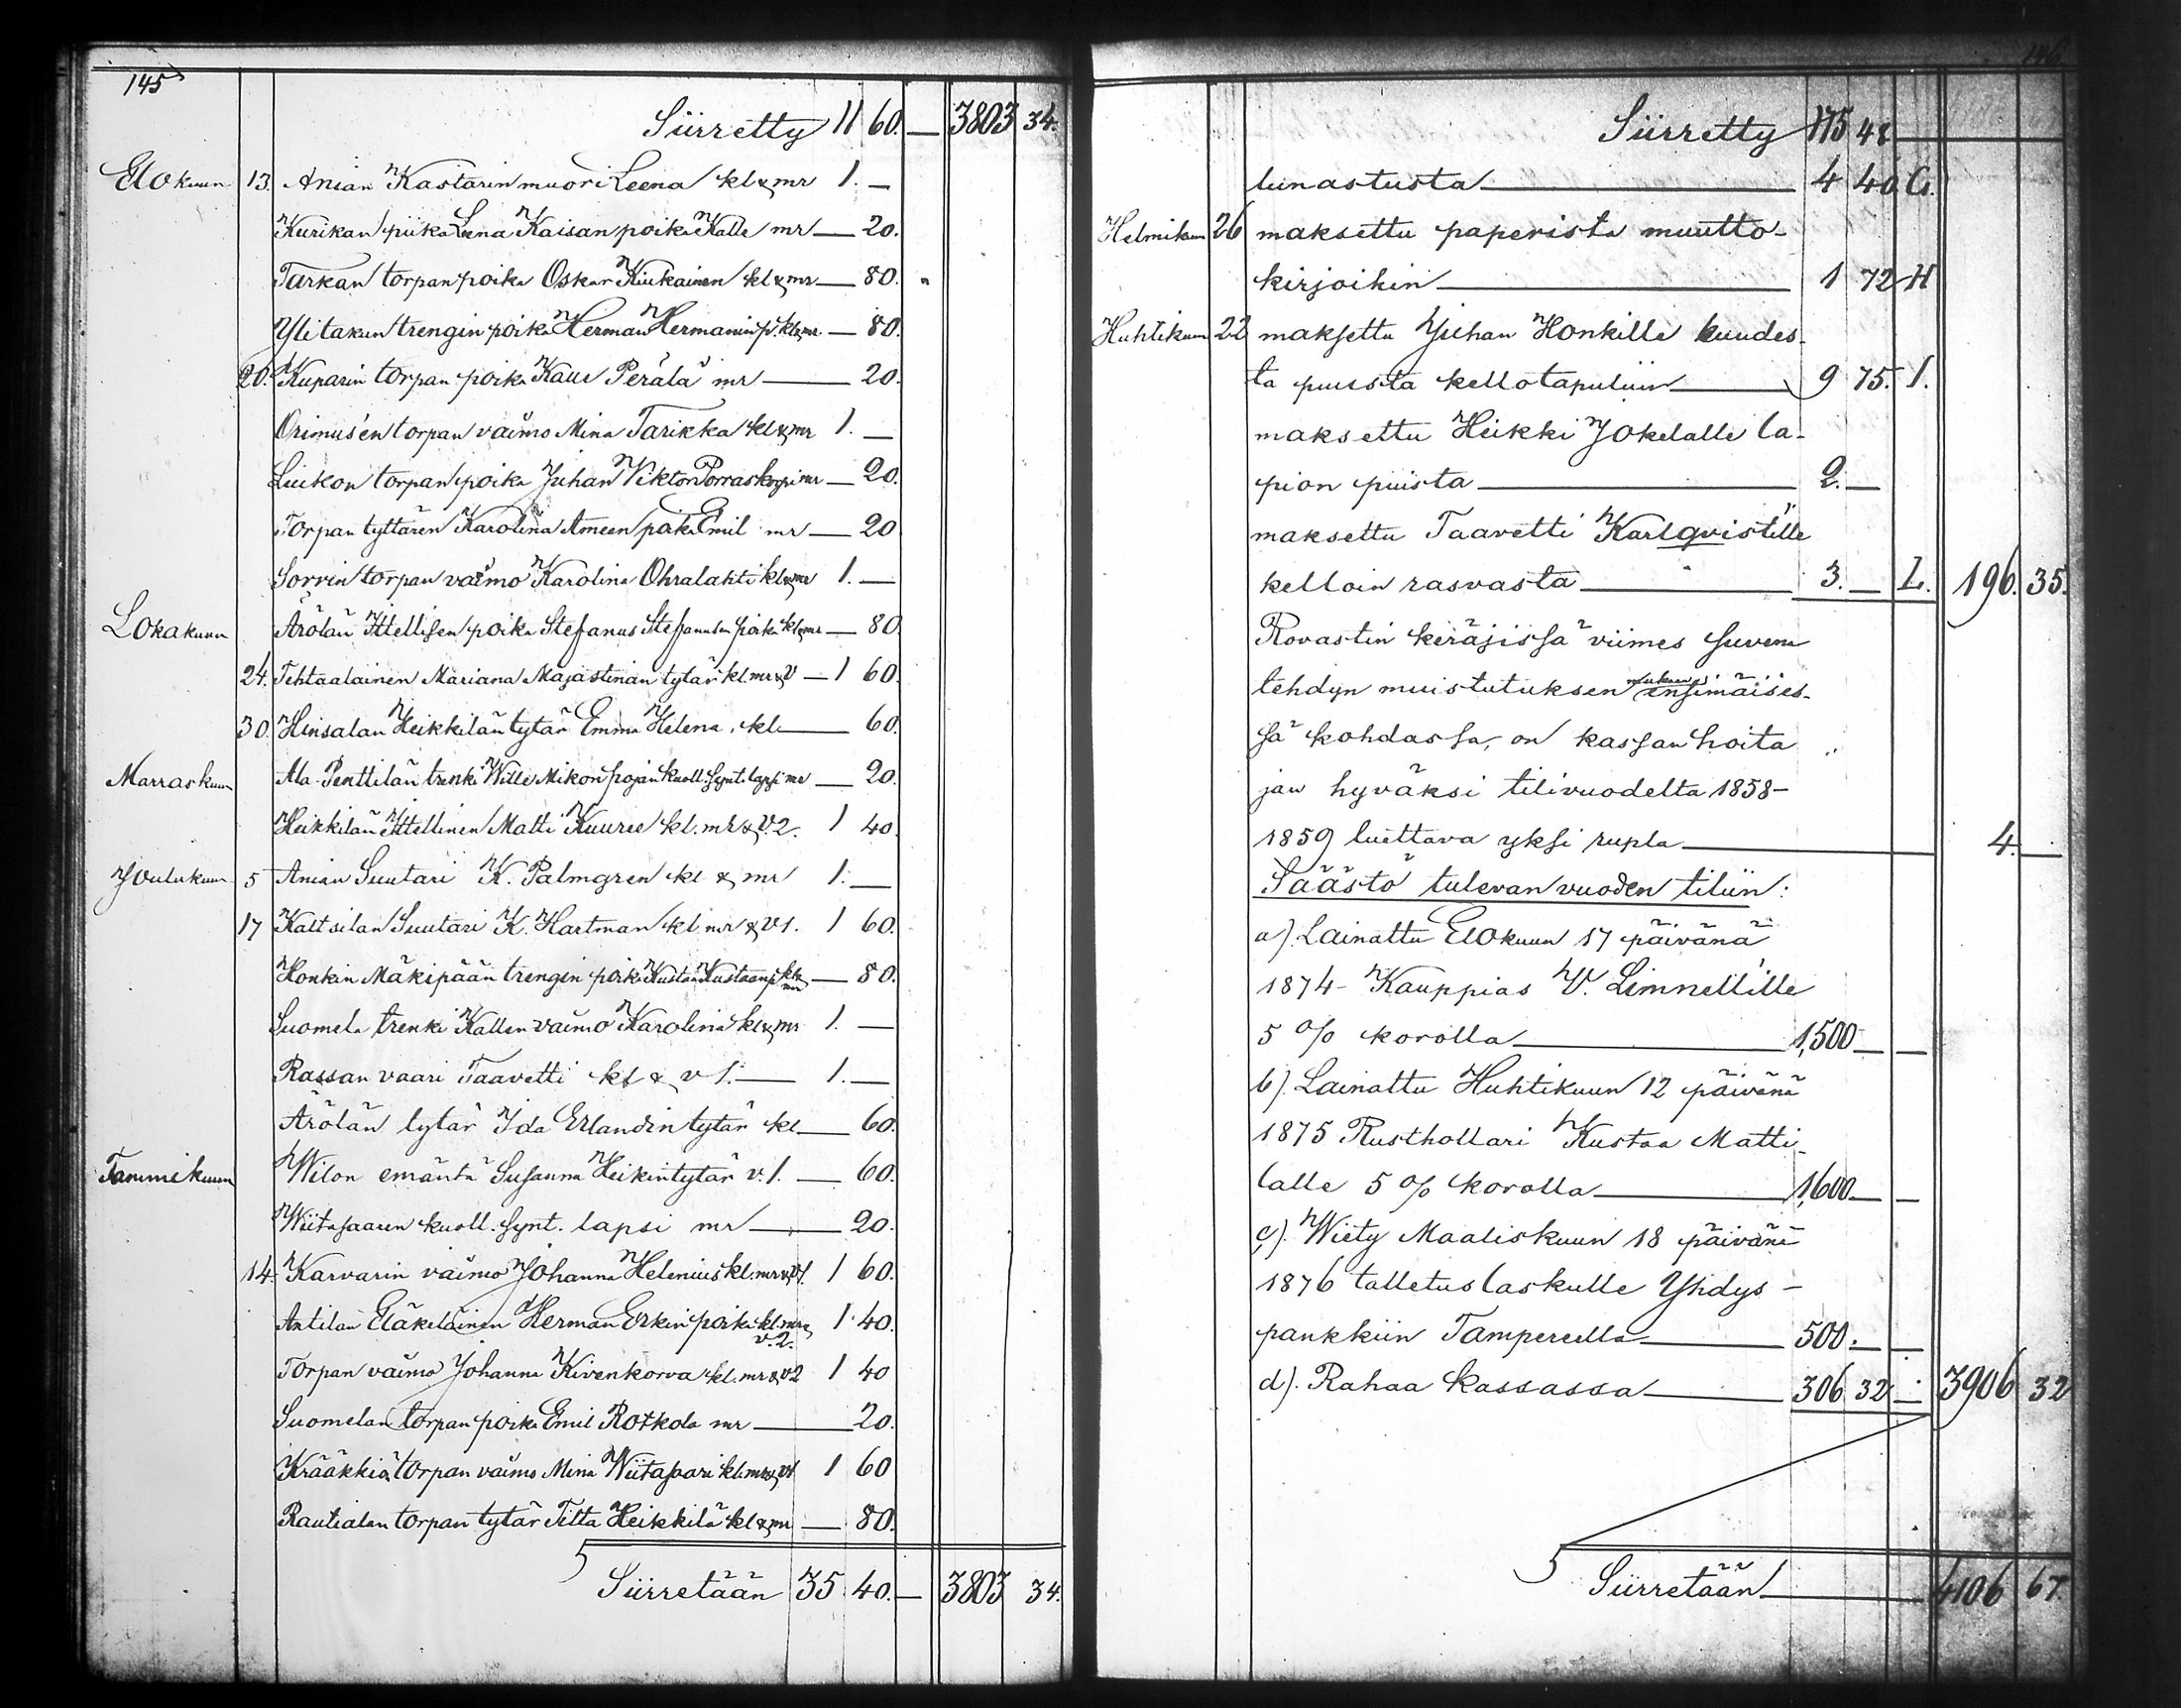 145
Siirretty 11 60. — 3803 34.
Elokuun 13. Anian Kastarin muori Leena kl & mr 1. —
Kurikan piika Leena Kaisan poika Kalle mr — 20.
Tarkan torpan poika Oskar Kiukainen kl & mr — 80.
Ylitakun trengin poika Herman Hermanin p. kl & mr. — 80.
20. Kuparin torpan poika Kalle Perälä mr — 20.
Orimus'en torpan vaimo Mina Tarikka kl & mr 1. —
Liukon torpan poika Juhan Viktor Porraskorpi mr — 20.
Torpan tyttären Karolina Ameen poika Emil mr — 20
Sorvin torpan vaimo Karolina Ohralahti kl & mr 1. —
Lokakuun Ärölän Ittellisen poika Stefanus Stefanuksen poika kl & mr — 80
24. Tehtaalainen Mariana Majastinan tytär kl. mr & v — 1 60.
30. Hinsalan Heikkilän tytär Emma Helena, kl — 60.
Marraskuun Ala-Penttilän trenki Wille Mikon pojan kuoll. synt. lapsi mr — 20.
Heikkilän Ittellinen Matti Kuuree kl. mr & v. 2. 1 40.
Joulukuun 5 Anian Suutari K. Palmgren kl & mr 1. —
17 Kaltsilan Suutari K. Hartman kl. mr & v 1. 1 60.
Honkin Mäkipään trengin poika Kustaa Kustaanp. kl & mr — 80.
Suomela trenki Kallen vaimo Karolina kl & mr 1. —
Rassan vaari Taavetti kl & v 1. — 1. —
Ärölän tytär Ida Erlandin tytär kl — 60.
Tammikuun Wilon emäntä Susanna Heikin tytär v. 1. — 60.
Wiitasaaren kuoll. synt. lapsi mr — 20.
14. Karvarin vaimo Johanna Helenius kl. mr & v 1. 1 60.
Antilan Eläkeläinen Herman Erkin poika kl. mr & v. 2. 1 40.
Torpan vaimo Johanna Kivenkorva kl. mr & v 2 1 40
Suomelan torpan poika Emil Rotkola mr — 20.
Krääkkiä torpan vaimo Mina Wiitasaari kl. mr & v 1 1 60
Rautialan torpan tytär Tilta Heikkilä kl & mr — 80.
Siirretään 35 40. — 3803 34.
146
Siirretty 175 48
lunastusta — 4 40 G.
Helmikuun 26 maksettu paperista muutto-
kirjoihin — 1 72 H
Huhtikuun 22 maksettu Juhan Honkille kuudes-
ta puusta kellotapuliin — 9 75. I.
maksettu Heikki Jokelalle la-
pion puista — 2. —
maksettu Taavetti Karlqvist'ille
kelloin rasvasta — 3. — L. 196. 35.
Rovastin keräjissä viimes suvena
tehdyn muistutuksen mukaan ensimäises-
sä kohdassa, on kassan hoita
jan hyväksi tilivuodelta 1858-
1859 luettava yksi rupla — 4. —
Säästö tulevan vuoden tiliin:
a). Lainattu Elokuun 17 päivänä
1874 - Kauppias W. Limnell'ille
5 % korolla — 1,500 — —
b). Lainattu Huhtikuun 12 päivänä
1875 Rusthollari Kustaa Matti-
lalle 5 % korolla — 1,600 — —
c). Wiety Maaliskuun 18 päivänä
1876 talletus laskulle Yhdys-
pankkiin Tampereella — 500. — —
d). Rahaa kassassa — 306 32 — 3906 32
Siirretään — 4106 67.